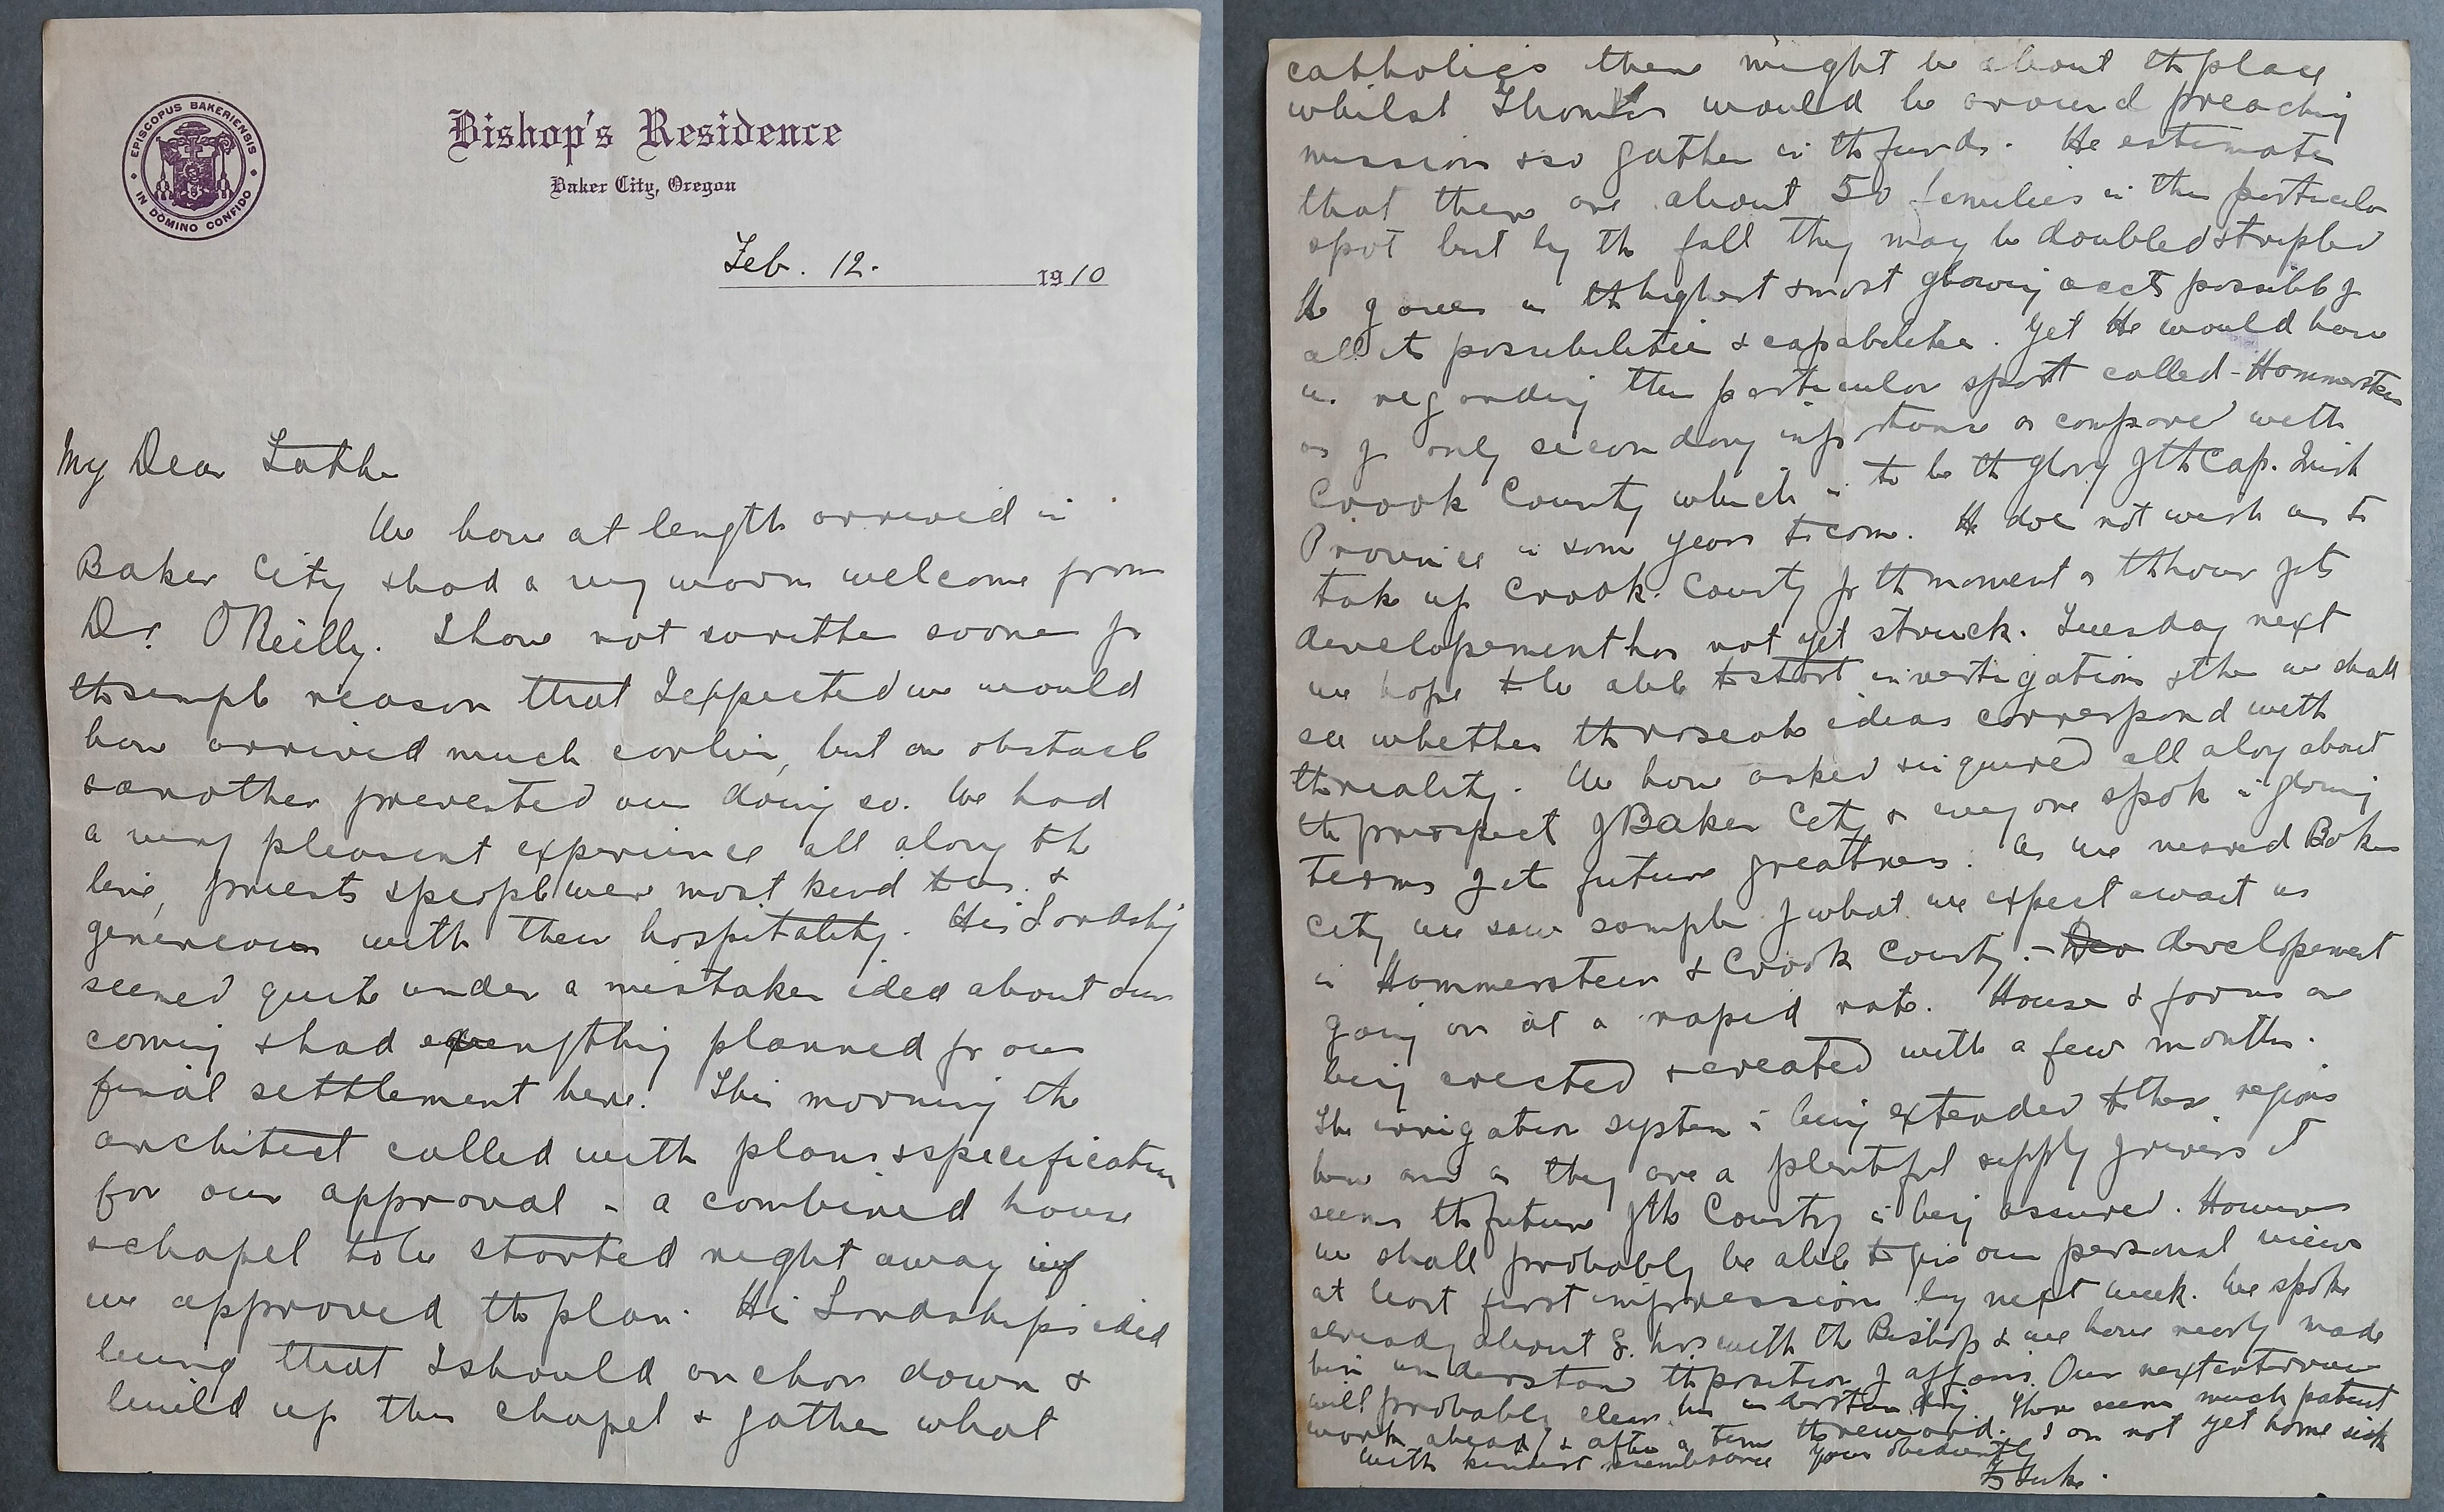 EPISCOPUS BAKERIENSIS
IN DOMINO CONFIDO
Bishop's Residence
Baker City, Oregon
Feb. 12. 1910
My Dear Father
We have at length arrived in
Baker City & had a very warm welcome from
Dr. O'Reilly. I have not written sooner for
the simple reason that I expected we would
have arrived much earlier, but one obstacle
& another prevented our doing so. We had
a very pleasant experience all along the
line, priests & people were most kind to us. &
generous with their hospitality. His Lordship
seemed quite under a mistaken idea about our
coming & had everything planned for our
final settlement here. This morning the
architect called with plans & specification
for our approval - a combined house
& chapel to be started right away if
we approved the plan. His Lordships idea
being that I should anchor down &
build up this chapel & gather what
catholics there might be about the place
whilst Thomas would be around preaching
mission & so gather in the funds. He estimates
that there are about 50 families in this particular
spot but by the fall they may be doubled & tripled
He gives us the highest & most glowing accts possible of
all its possibilities & capabilities. Yet He would have
us regarding this particular spot called - Hammerstein
as of only secondary importance as compared with
Crook County which is to be the glory of the Cap. Irish
Province in some years to come. He does not wish us to
take up Crook. County for the moment as the hour for its
developement has not yet struck. Tuesday next
we hope to be able to start investigation & then we shall
see whether the roseate ideas correspond with
the reality. We have asked & inquired all along about
the prospect of Baker City & every one spoke in glowing
terms of its future greatness. As we neared Baker
City we saw sample of what we expect await us
in Hammerstein & Crook County. - Dev developement
going on at a rapid rate. House & farms are
being erected & created with a few months.
The irrigation system is being extended to these regions
here and as they are a plentiful supply of rivers it
seems the future of the Country is being assured. However
we shall probably be able to give our personal views
at least first impressions by next week. We spoke
already about 8. hrs with the Bishop & we have nearly made
him understand the position of affairs. Our next interview
will probably clear his understanding. There seems much patient
work ahead & after a time the reward. I am not yet home sick
With kindest remembrance Your obediently
Fr Luke.